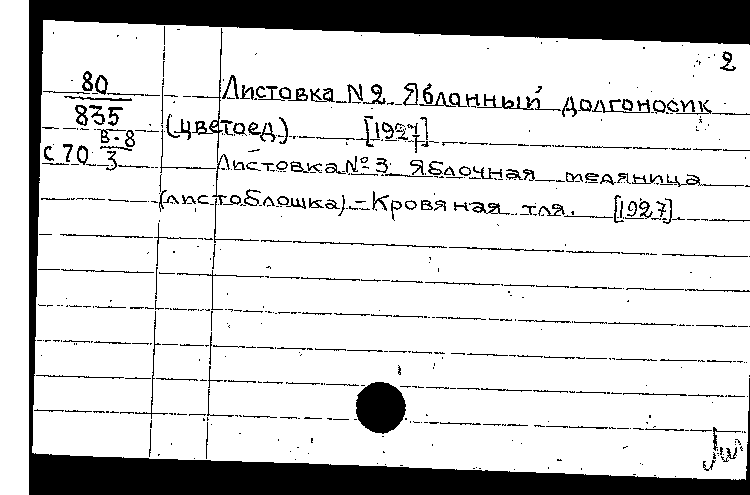 2
80
835
В-8
с 70 3
Листовка N 2 Яблонный долгоносик
(цветоед) [1927]
Листовка № 3 Яблочная медяница
(листоблошка) - Кровяная тля. [1927]